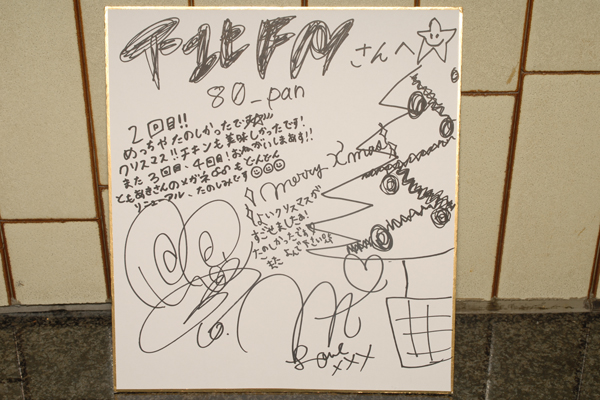 下北FM
さんへ
80_pan
2回目!!
めっちゃたのしかったでーす!!
クリスマス!!チキンも美味しかったです!
また3回目、4回目!おねがいしまぁす!!
ともあきさんのメガネ
どんどん
リニューアル、たのしみです
Merry Xmas
よいクリスマスが
すごせましたぁ!
たのしかったです
また よんで下さい
xxx